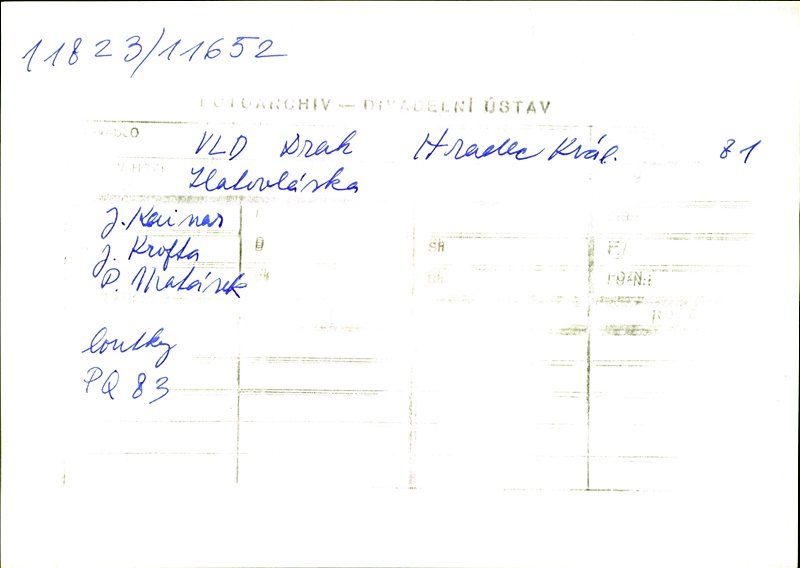 11823/11652
FOTOARCHIV — DIVADELNÍ ÚSTAV
VLD Drak Hradec Král. 81
Zlatovláska
J. Kainar
J. Krofta
P. Matásek
loutky
PQ 83